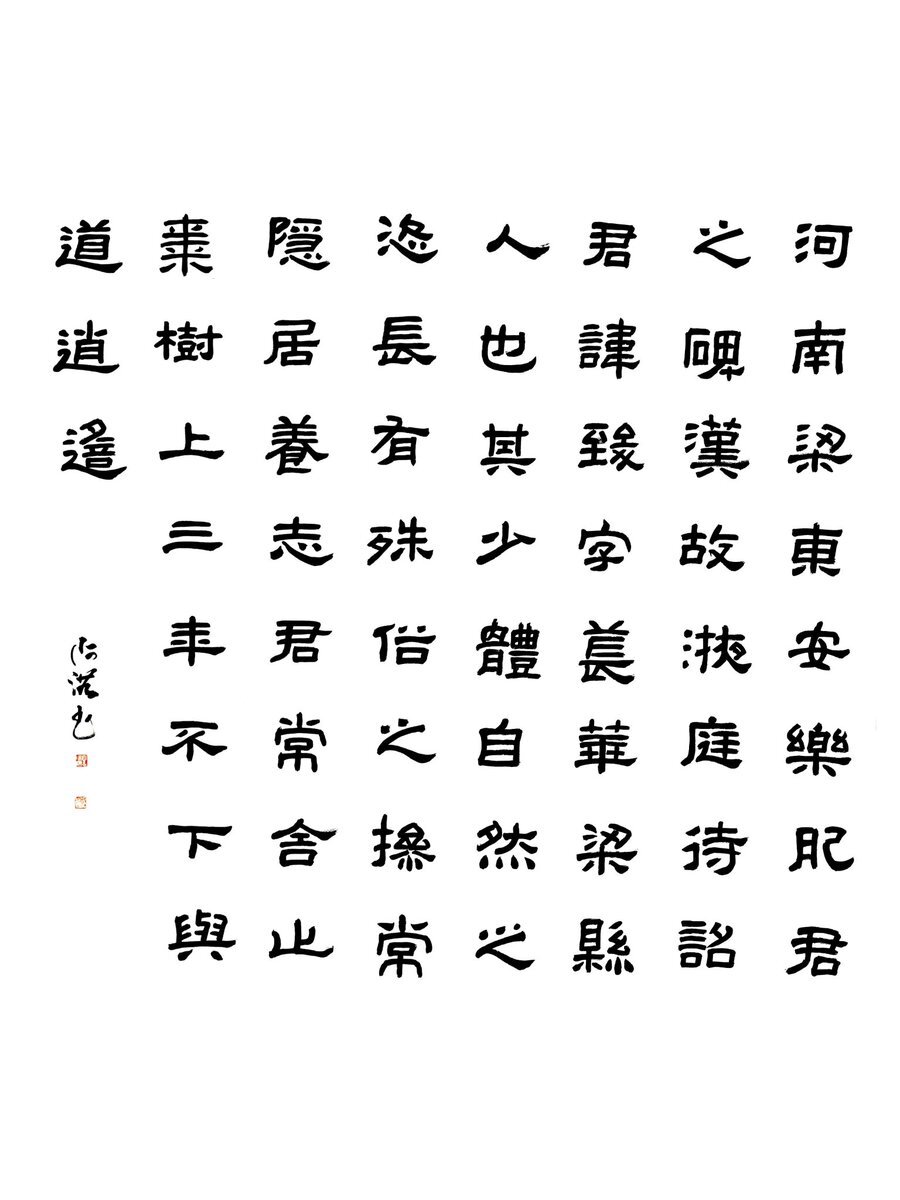 河南梁東安樂肥君
之碑漢故掖庭待詔
君諱致字萇華梁縣
人也其少體自然之
恣長有殊俗之操常
隱居養志君常舍止
棗樹上三年不下與
道逍遙